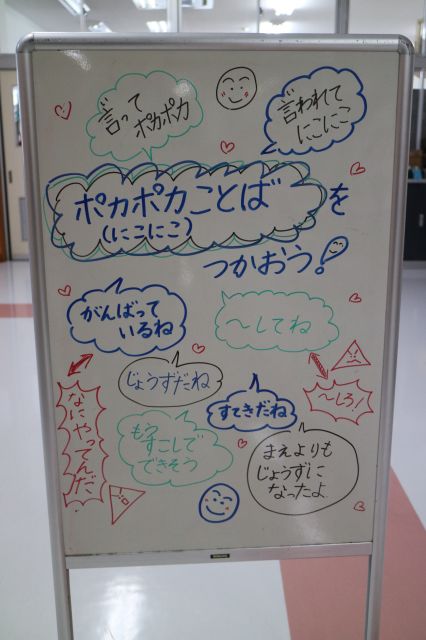 言って
ポカポカ
言われて
にこにこ
ポカポカことばを
(にこにこ)
つかおう!
がんばって
いるね
～してね
じょうずだね
～しろ!
なにやってんだ
すてきだね
もう
すこしで
できそう
まえよりも
じょうずに
なったよ